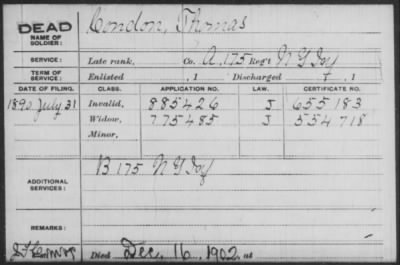 DEAD
NAME OF SOLDIER:
Condon, Thomas
SERVICE: Late rank, Co. A, 175 Reg't N Y Inf
TERM OF SERVICE: Enlisted , 1 Discharged , 1
DATE OF FILING. CLASS. APPLICATION NO. LAW. CERTIFICATE NO.
1890 July 31 Invalid, 885426 J 655183
Widow, 775485 J 554718
Minor,
ADDITIONAL SERVICES: B 175 N Y Inf
REMARKS:
Died Dec, 16, 1902, at